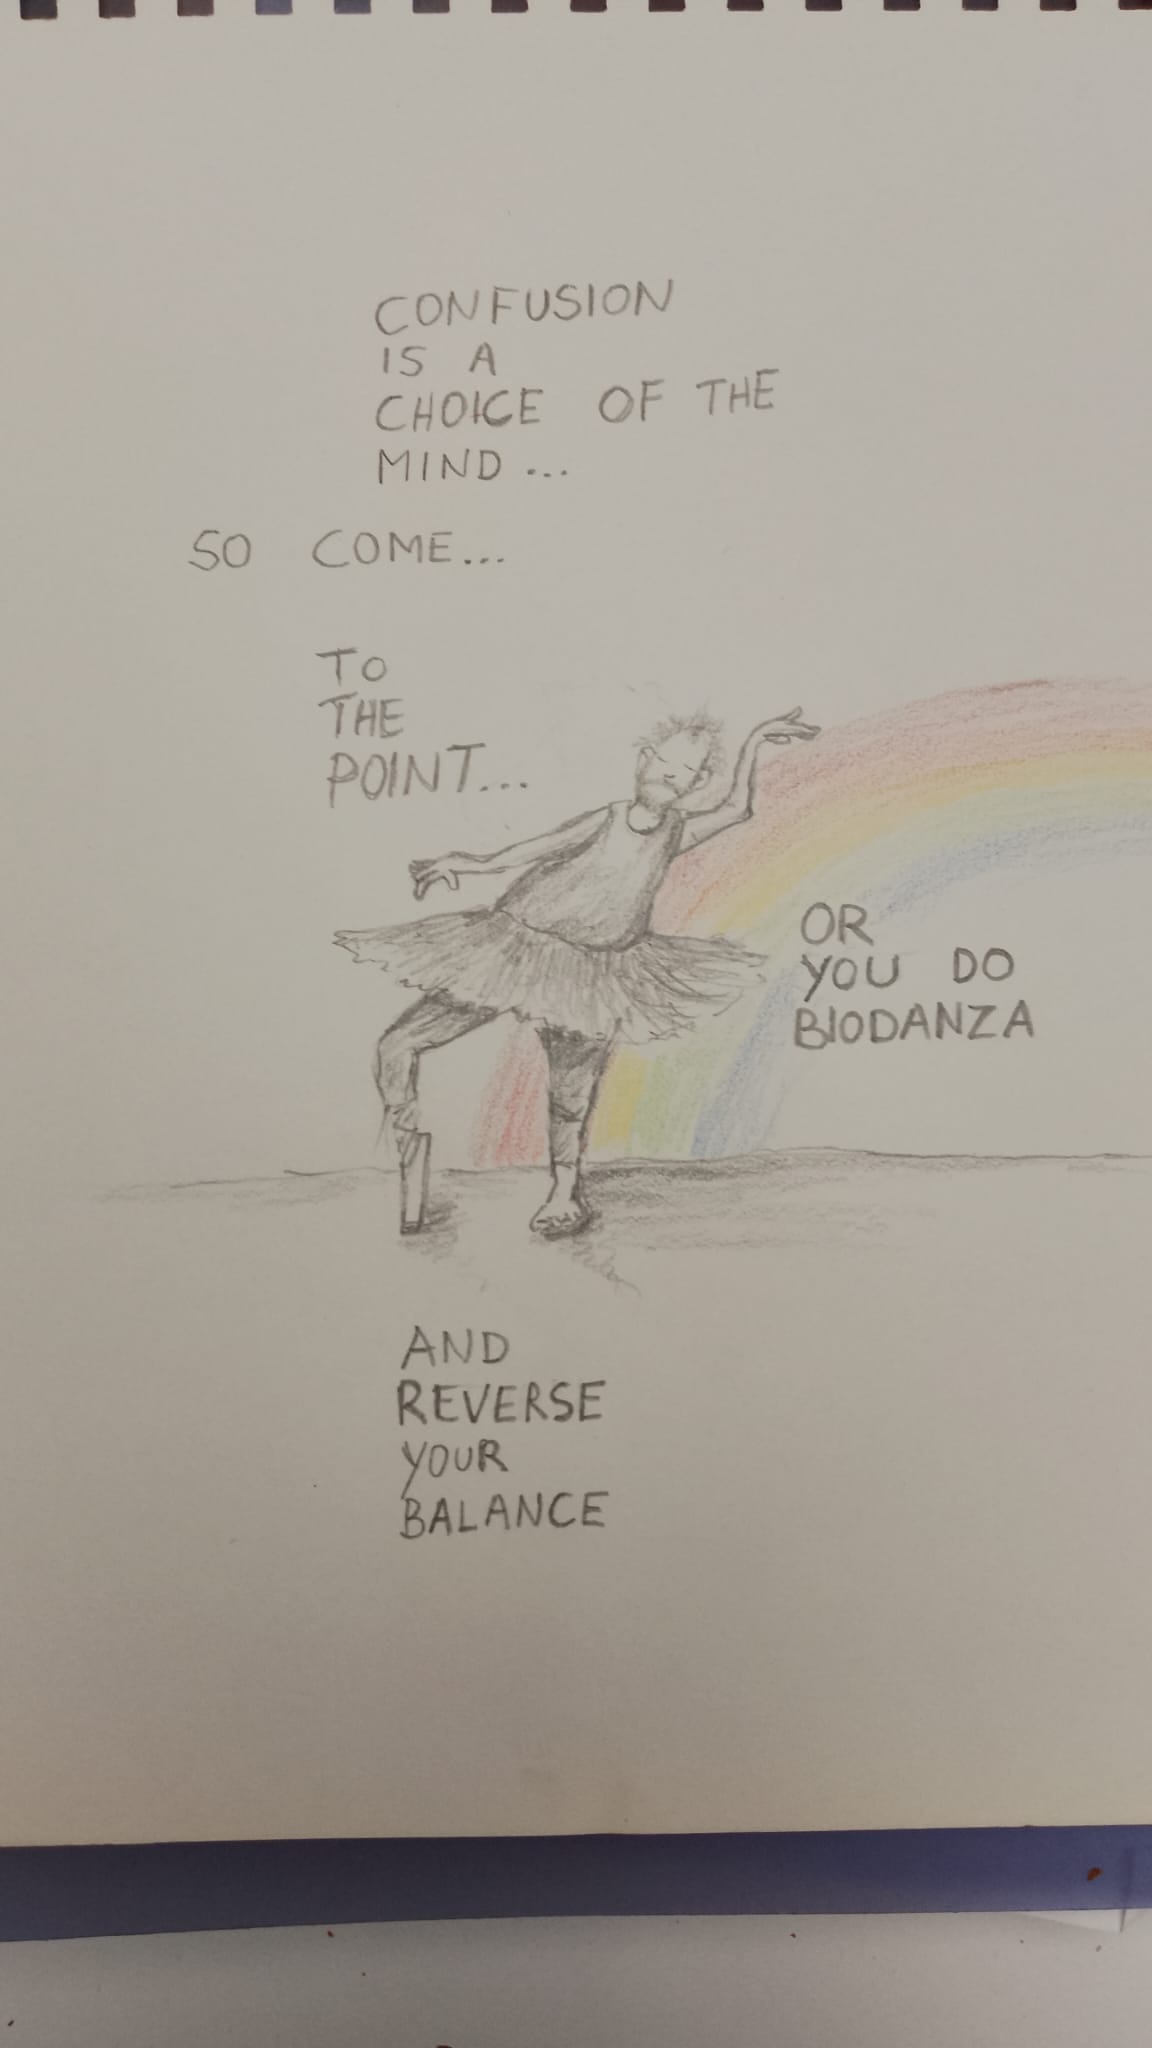 CONFUSION
IS A
CHOICE OF THE
MIND...
SO COME...
TO
THE
POINT...
OR
YOU DO
BIODANZA
AND
REVERSE
YOUR
BALANCE